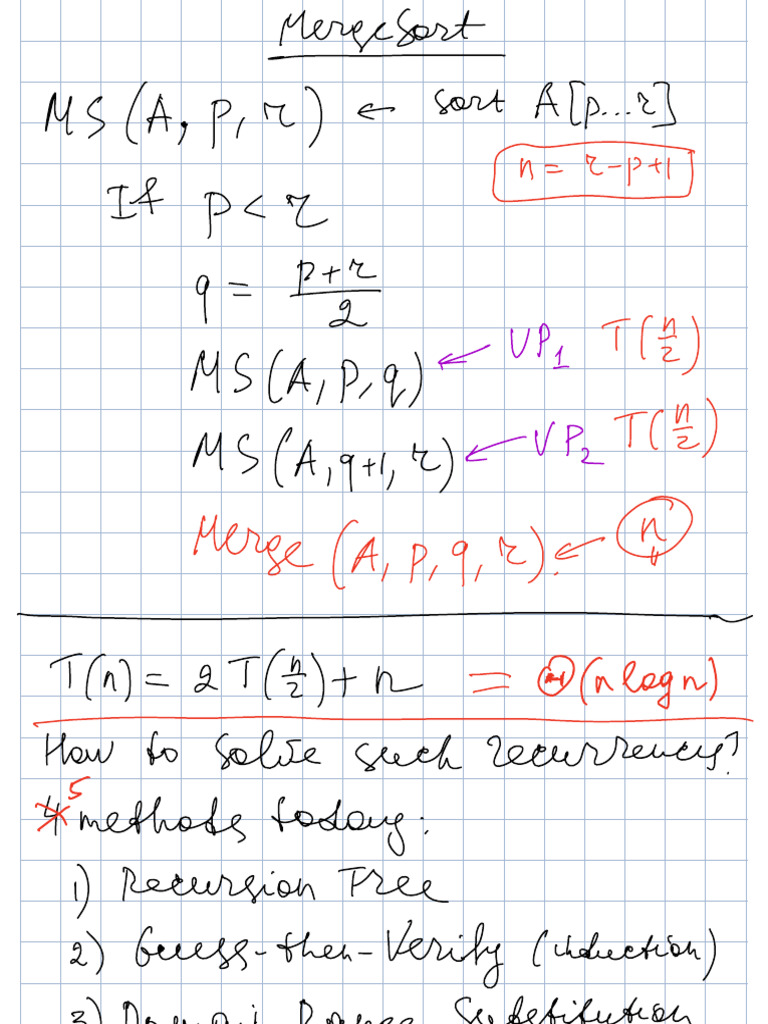 MergeSort
MS(A, p, r) ← sort A[p...r]
n = r-p+1
If p < r
q = (p+r)/2
MS(A, p, q) ← VP₁ T(n/2)
MS(A, q+1, r) ← VP₂ T(n/2)
Merge (A, p, q, r). ← n
T(n) = 2T(n/2) + n = Θ(n log n)
How to solve such recurrency?
5 methods today:
1) Recursion Tree
2) Guess-then-Verify (induction)
3) Domain Range Substitution